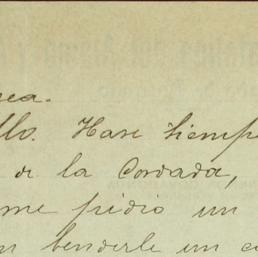 llo. Hase tiemp
de la Cordada,
me pidio un
benderle un c